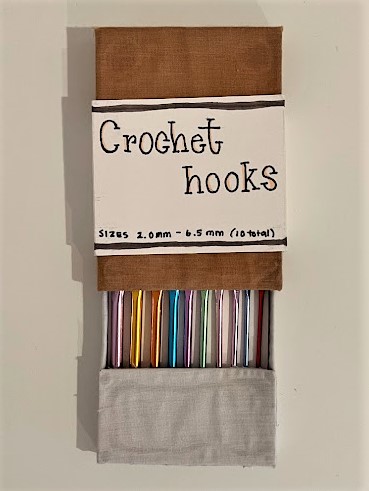 Crochet
hooks
SIZES 2.0mm - 6.5mm (10 total)